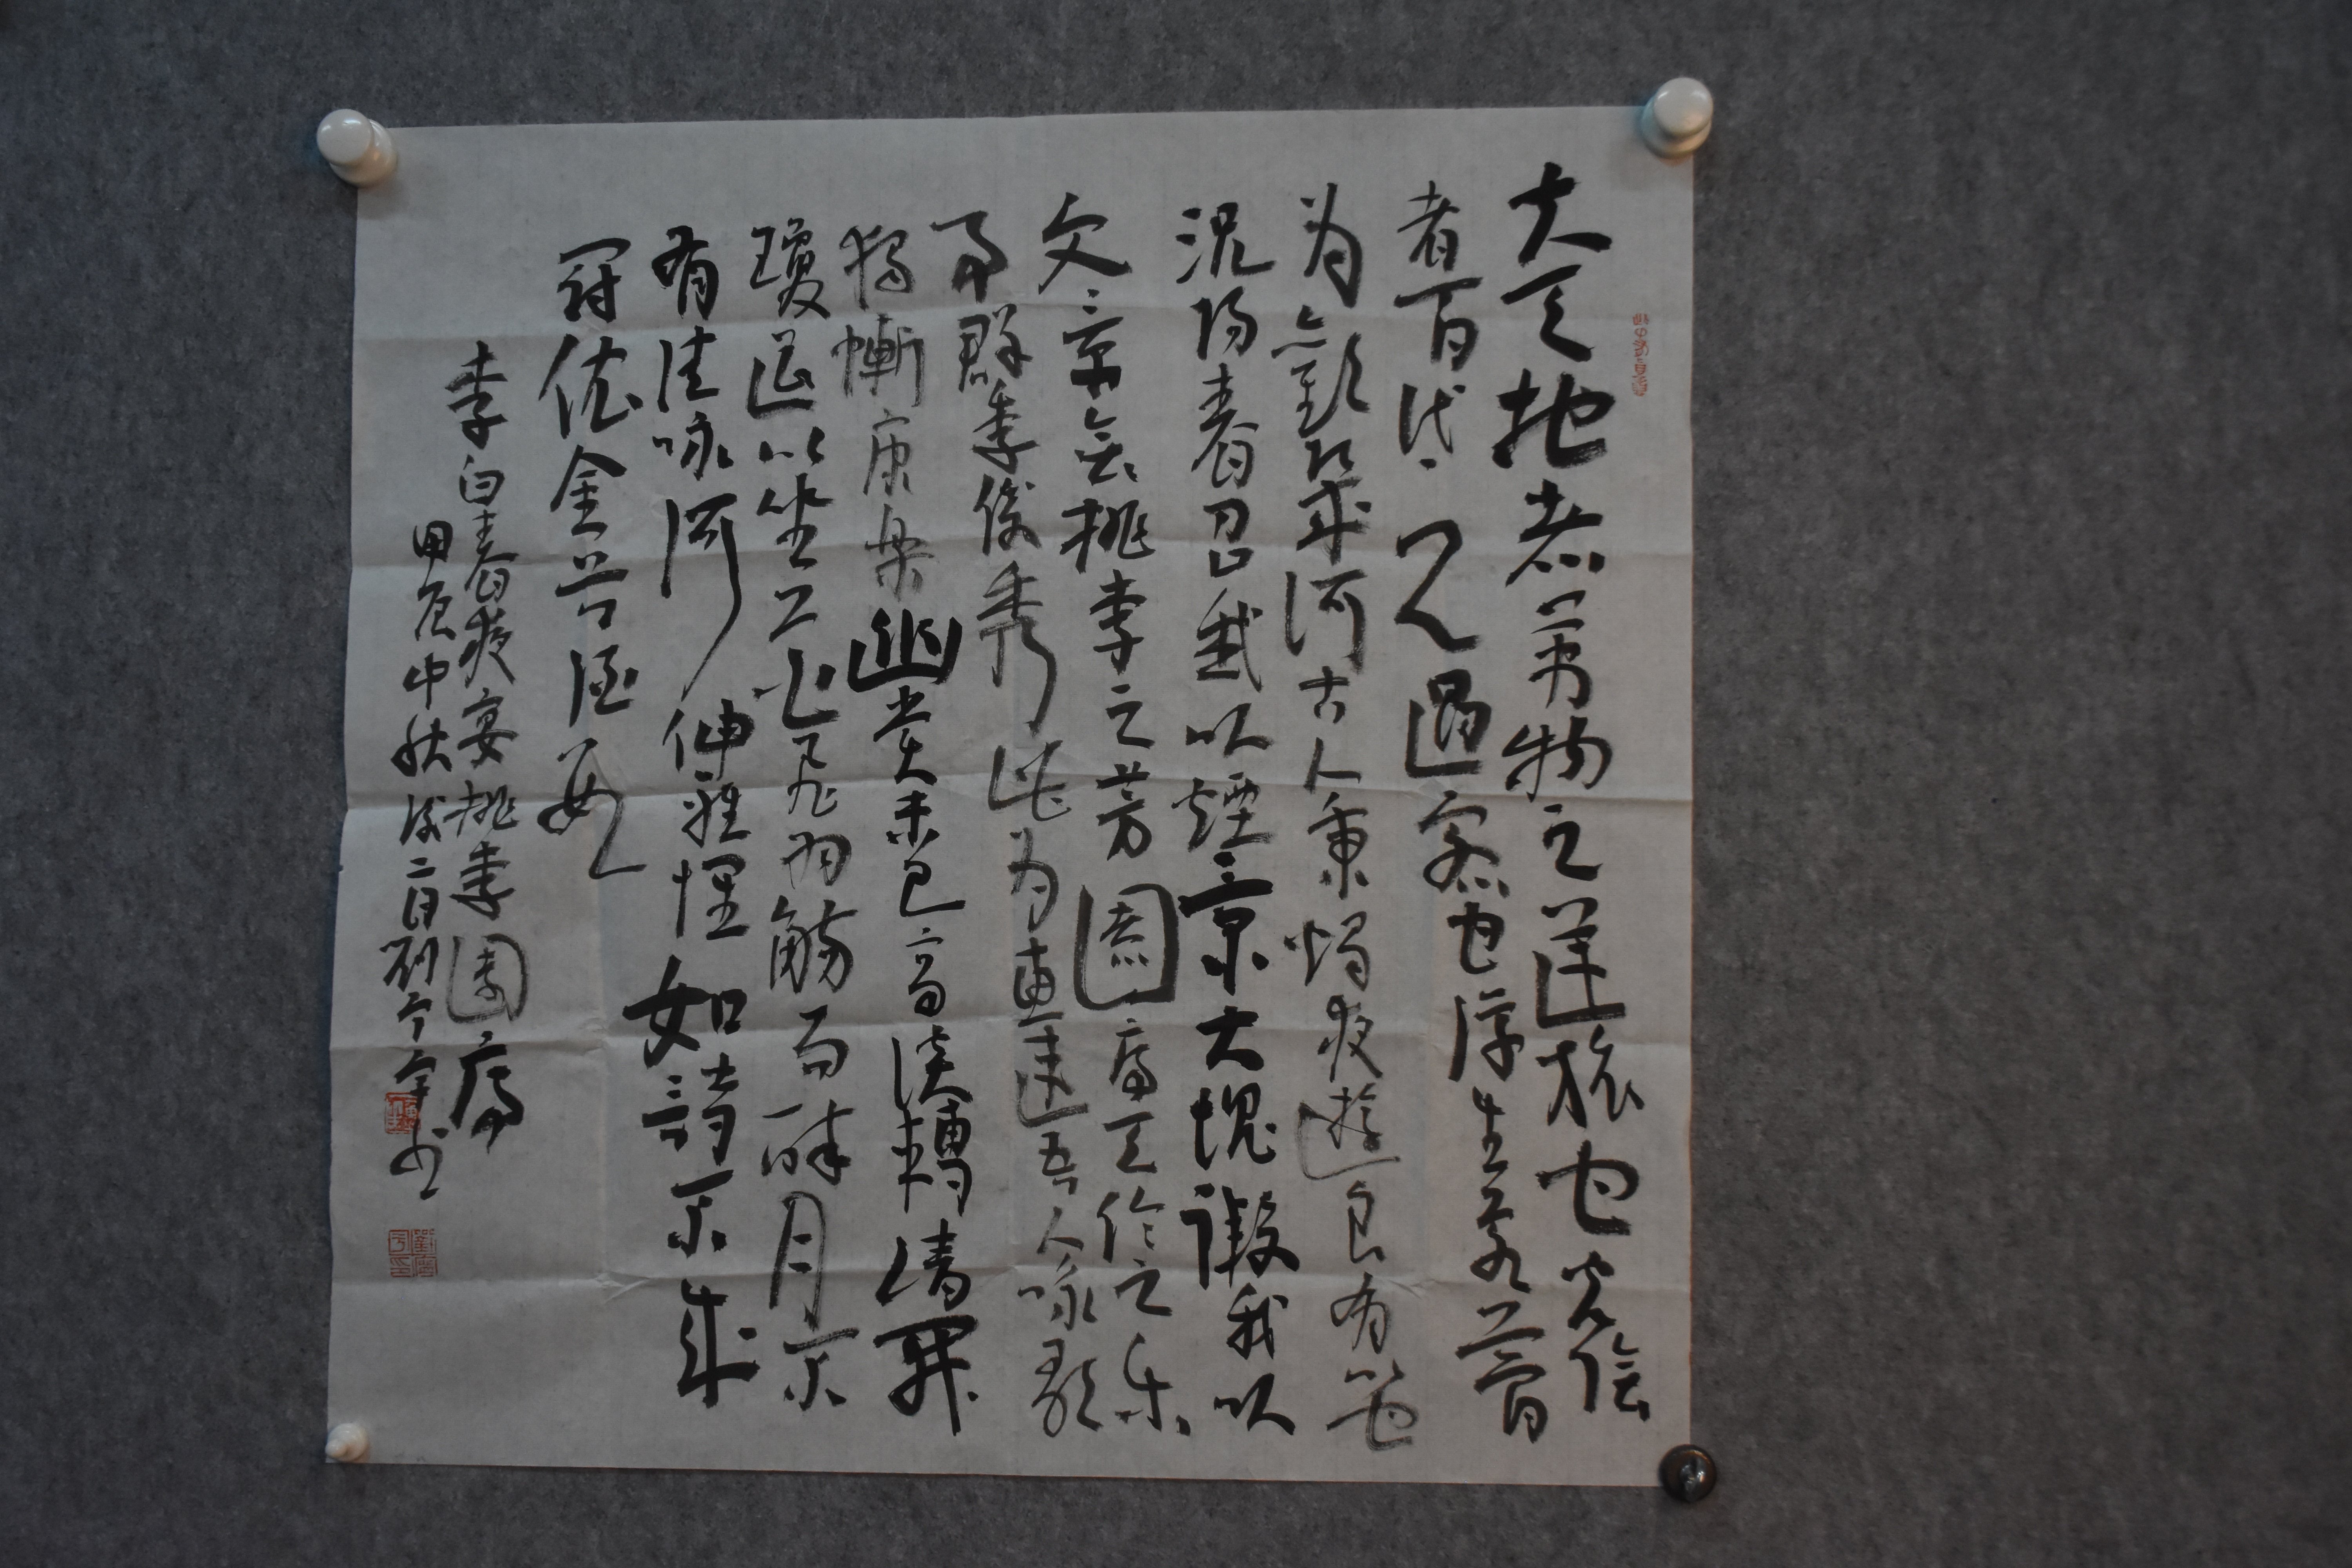 夫天地者萬物之逆旅也光陰
者百代之過客也浮生若夢
为歡幾何古人秉燭夜遊良有以也
況陽春召我以煙景大塊假我以
文章會桃李之芳園序天倫之樂
事群季俊秀皆为惠連吾人詠歌
獨慚康樂幽賞未已高談轉清開
瓊筵以坐花飛羽觴而醉月不
有佳詠何伸雅懷如詩不成
罰依金谷酒數
李白春夜宴桃李園序
甲辰中秋後二日劉书